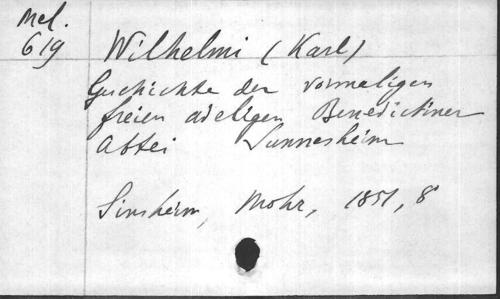 Mel.
619 Wilhelmi (Karl)
Geschichte der vormaligen
freien adeligen Benedictiner
Abtei Sunnesheim
Sinsheim, Mohr, 1851, 8°